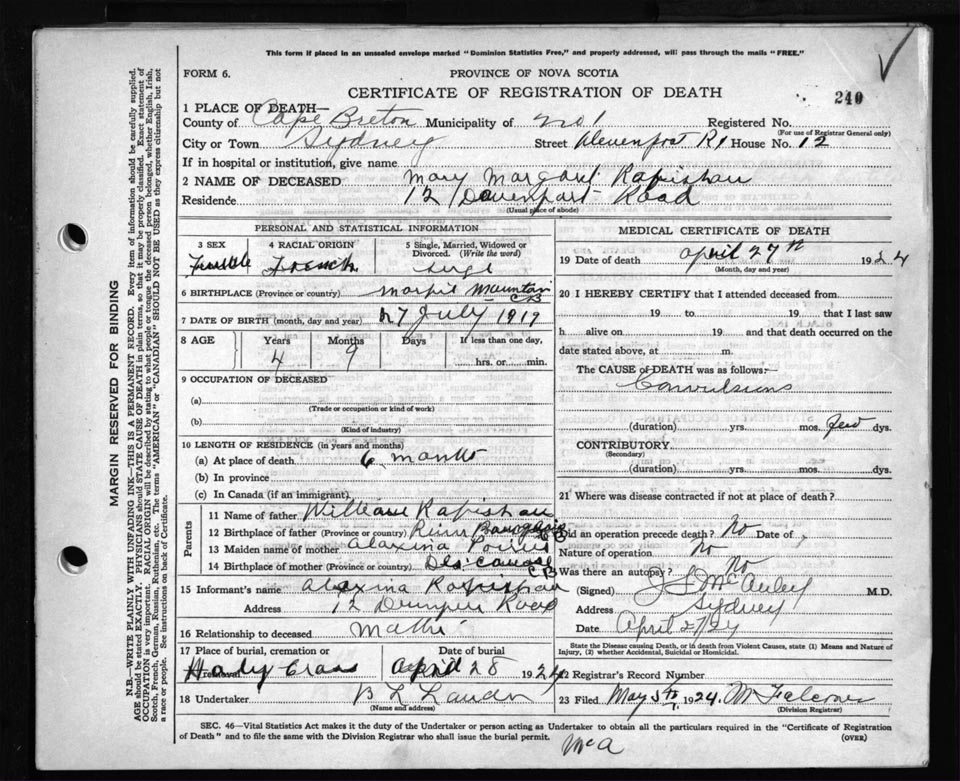 This form if placed in an unsealed envelope marked "Dominion Statistics Free," and properly addressed, will pass through the mails "FREE."
FORM 6.
PROVINCE OF NOVA SCOTIA
CERTIFICATE OF REGISTRATION OF DEATH
240
1 PLACE OF DEATH—
County of Cape Breton Municipality of No 1 Registered No.
(For use of Registrar General only)
City or Town Sydney Street Davenport Rd House No. 12
If in hospital or institution, give name
2 NAME OF DECEASED Mary Margaret
Residence 12 Davenport Road
(Usual place of abode)
PERSONAL AND STATISTICAL INFORMATION
3 SEX
4 RACIAL ORIGIN
5 Single, Married, Widowed or Divorced. (Write the word)
Female French
6 BIRTHPLACE (Province or country) Mountain CB
7 DATE OF BIRTH (month, day and year) 27 July 1919
8 AGE Years Months Days If less than one day,
4 9 hrs. or min.
9 OCCUPATION OF DECEASED
(a)
(Trade or occupation or kind of work)
(b)
(Kind of industry)
10 LENGTH OF RESIDENCE (in years and months)
(a) At place of death 6 months
(b) In province
(c) In Canada (if an immigrant)
Parents
11 Name of father William
12 Birthplace of father (Province or country) River CB
13 Maiden name of mother
14 Birthplace of mother (Province or country) CB
15 Informant's name
Address 12 Road
16 Relationship to deceased Mother
17 Place of burial, cremation or removal
Date of burial
Holy Cross April 28 1924
18 Undertaker
(Name and address)
MEDICAL CERTIFICATE OF DEATH
19 Date of death April 27th 1924
(Month, day and year)
20 I HEREBY CERTIFY that I attended deceased from
19 to 19 that I last saw
h alive on 19 and that death occurred on the
date stated above, at m.
The CAUSE of DEATH was as follows:—
Convulsions
(duration) yrs. mos. few dys.
CONTRIBUTORY.
(Secondary)
(duration) yrs. mos. dys.
21 Where was disease contracted if not at place of death?
Did an operation precede death? No Date of
Nature of operation No
Was there an autopsy? No
(Signed) McAuley M.D.
Address Sydney
Date April 27/24
State the Disease causing Death, or in death from Violent Causes, state (1) Means and Nature of Injury, (2) whether Accidental, Suicidal or Homicidal.
22 Registrar's Record Number
23 Filed May 5th 1924.
(Division Registrar)
SEC. 46—Vital Statistics Act makes it the duty of the Undertaker or person acting as Undertaker to obtain all the particulars required in the "Certificate of Registration
of Death" and to file the same with the Division Registrar who shall issue the burial permit.
(OVER)
McA
MARGIN RESERVED FOR BINDING
N.B.—WRITE PLAINLY WITH UNFADING INK—THIS IS A PERMANENT RECORD. Every item of information should be carefully supplied.
AGE should be stated EXACTLY. PHYSICIANS should STATE CAUSE OF DEATH in plain terms, so that it may be properly classified. Exact statement of
OCCUPATION is very important. RACIAL ORIGIN will be described by stating to what people or tongue the deceased person belonged, whether English, Irish,
Scotch, French, German, Russian, Ruthenian, etc. The terms "AMERICAN" or "CANADIAN" SHOULD NOT BE USED as they express citizenship but not
a race or people. See instructions on back of Certificate.